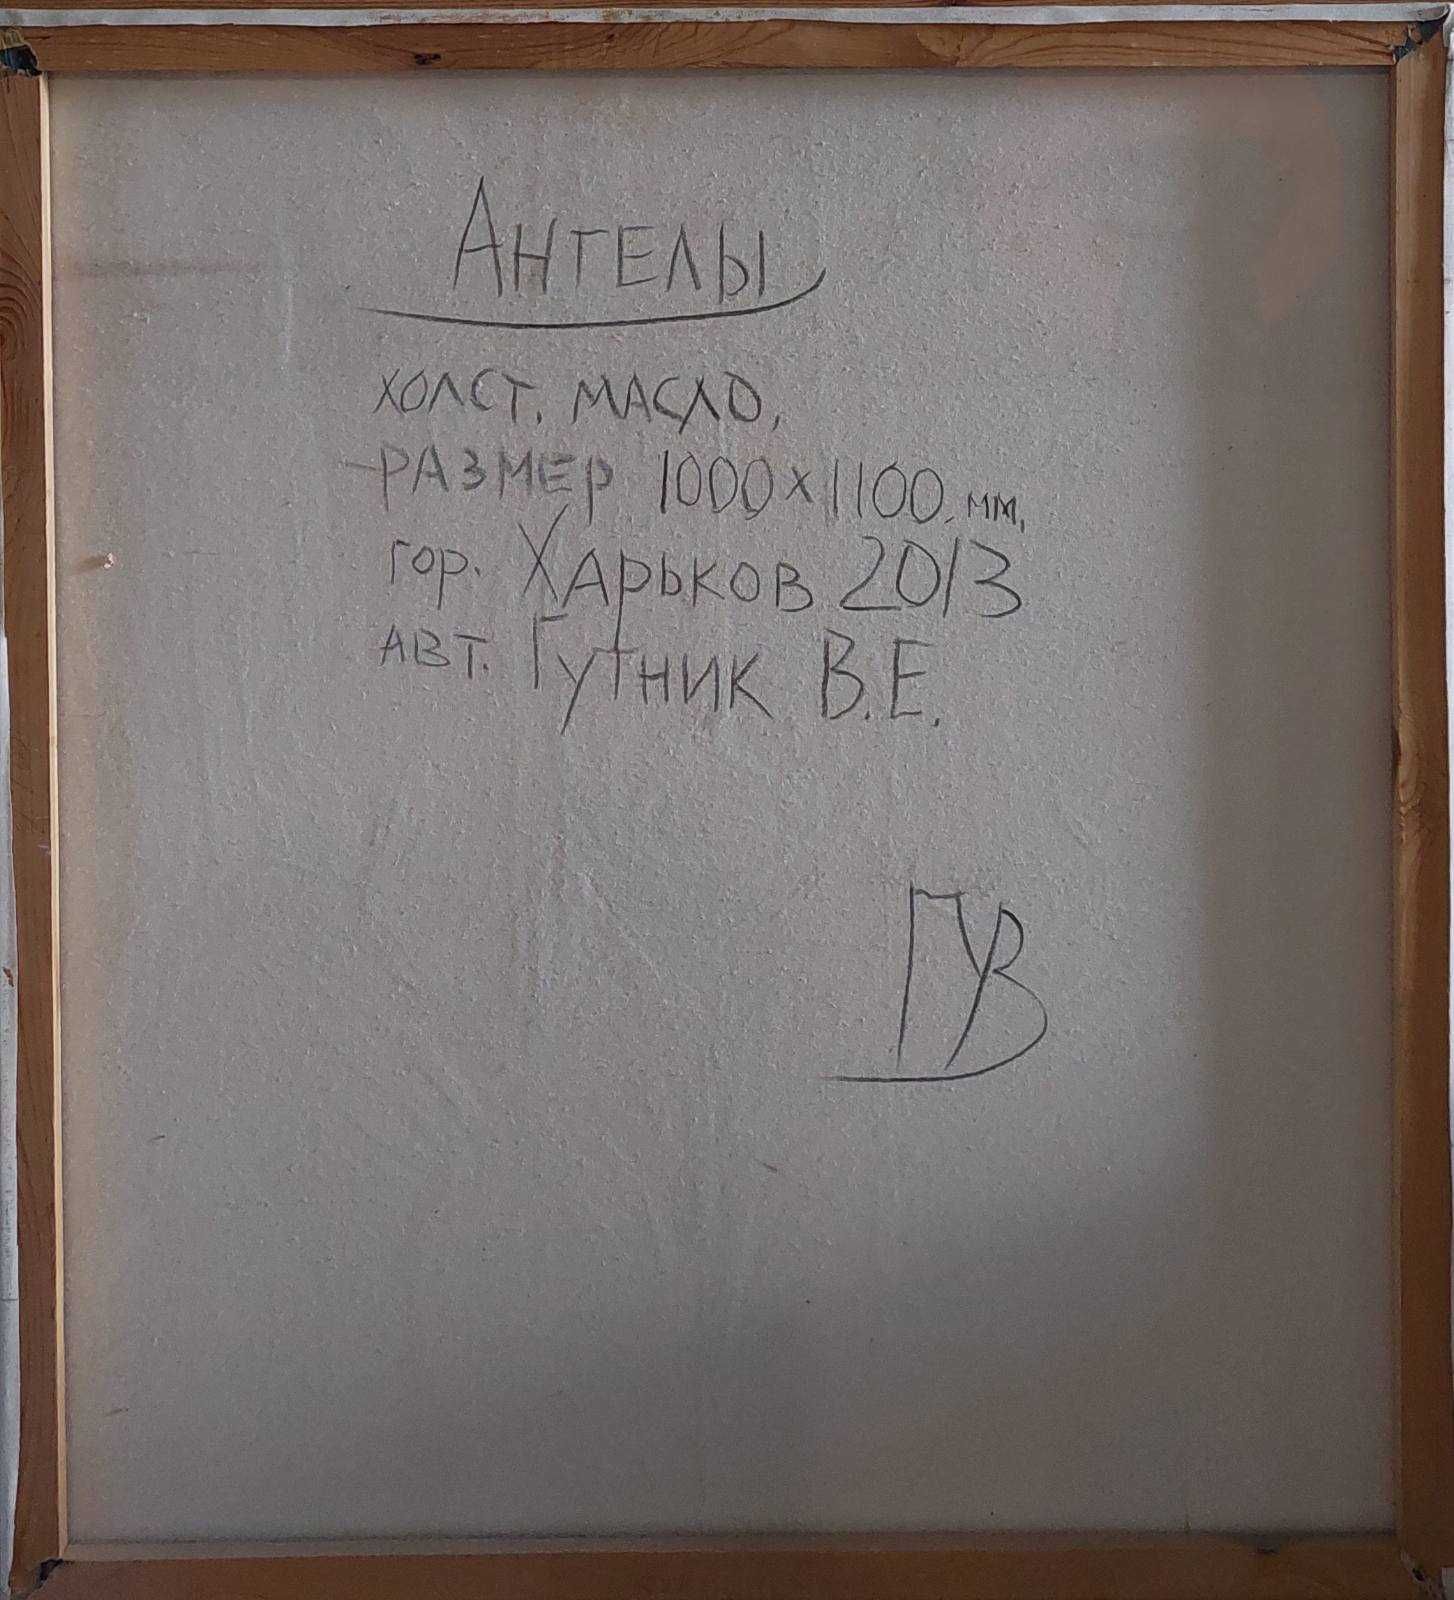 Ангелы
холст. масло,
размер 1000х1100. мм.
гор. Харьков 2013
авт. Гутник В.Е.
ГУВ